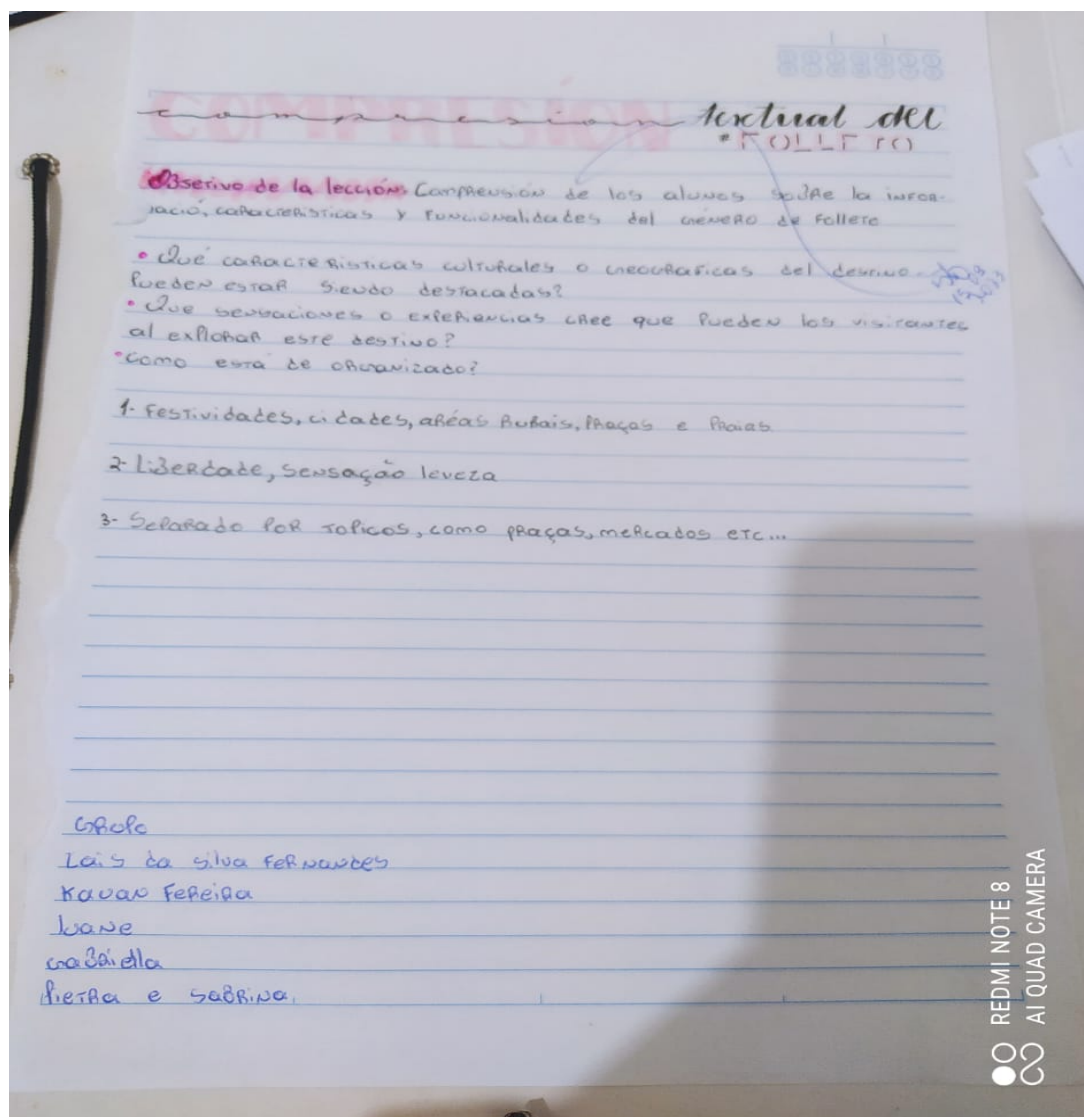 COMPRESIÓN
compresion textual del
*FOLLETO
Obserivo de la lección: Comprensión de los alunos sobre la infor-
mació, características y funcionalidades del género de folleto
• Qué características culturales o geograficas del destino
Pueden estar siendo destacadas?
• Que sensaciones o experiencias cree que pueden los visitantes
al explorar este destino?
• Como esta de organizado?
1- Festividades, cidades, aréas Rurais, Praças e Praias.
2- Liberdade, sensação leveza
3- Separado por topicos, como praças, mercados etc...
Grupo
Lais da silva Fernandes
Kauan Fereira
Luane
Gabriella
Pietra e Sabrina.
REDMI NOTE 8
AI QUAD CAMERA